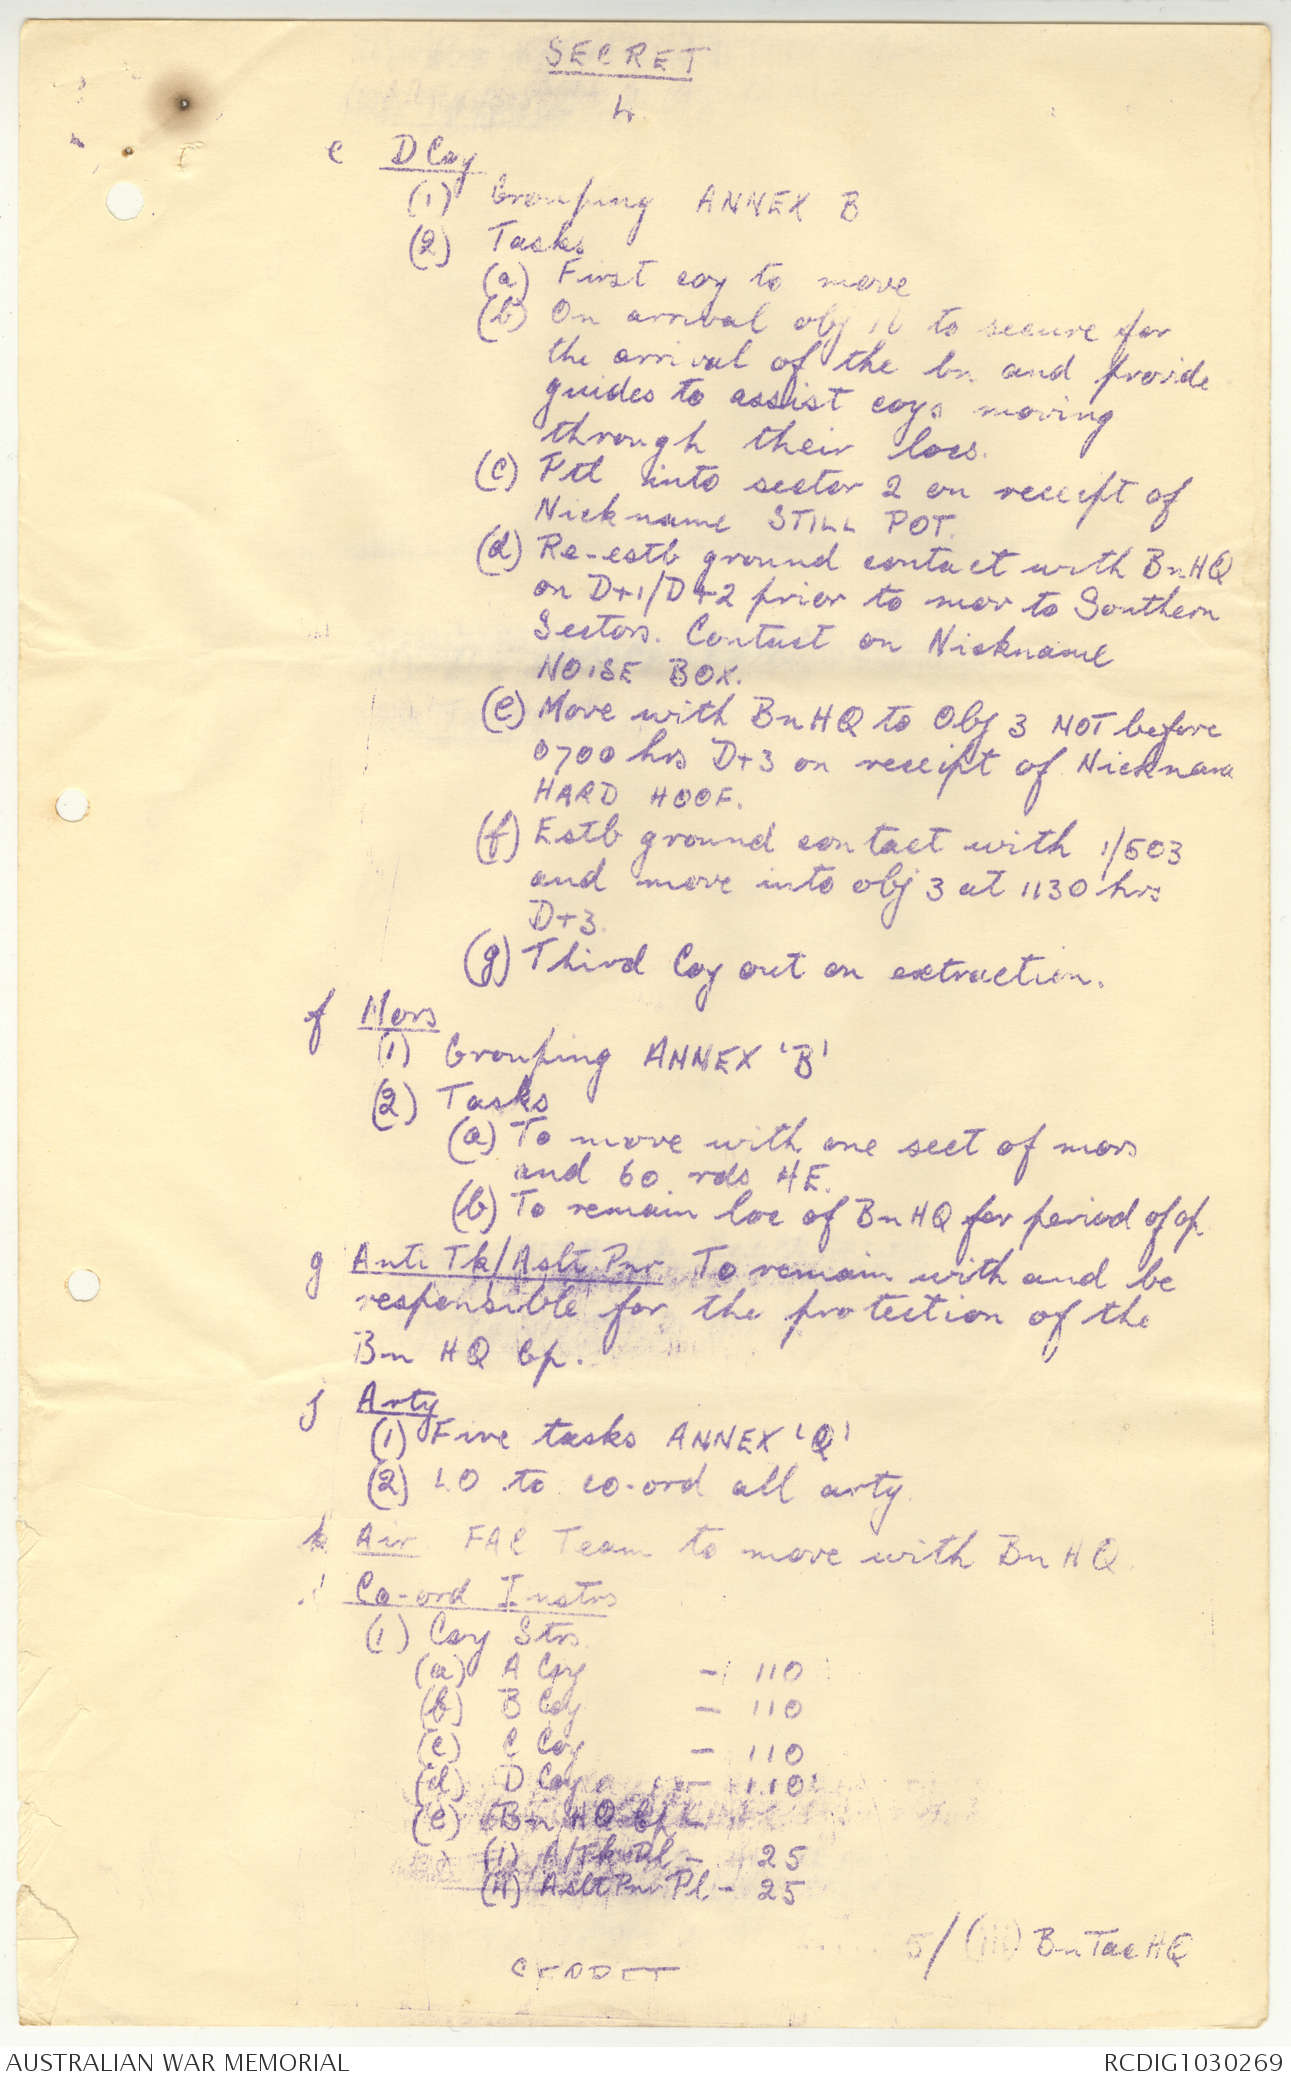 SECRET
4.
e D Coy
(1) Grouping ANNEX B
(2) Tasks
(a) First coy to move
(b) On arrival obj 1b to secure for
the arrival of the bn and provide
guides to assist coys moving
through their locs.
(c) Ptl into sector 2 on receipt of
Nickname STILL POT.
(d) Re-estb ground contact with Bn HQ
on D+1/D+2 prior to mov to Southern
Sectors. Contact on Nickname
NOISE BOX.
(e) Move with Bn HQ to Obj 3 NOT before
0700 hrs D+3 on receipt of Nickname
HARD HOOF.
(f) Estb ground contact with 1/503
and move into obj 3 at 1130 hrs
D+3.
(g) Third Coy out on extraction.
f Mors
(1) Grouping ANNEX 'B'
(2) Tasks
(a) To move with one sect of mors
and 60 rds HE.
(b) To remain loc of Bn HQ for period of op.
g Anti Tk/Aslt Pnr. To remain with and be
responsible for the protection of the
Bn HQ Gp.
j Arty
(1) Fire tasks ANNEX 'Q'
(2) LO to co-ord all arty
k Air FAC Team to move with Bn HQ.
l Co-ord Instrs
(1) Coy Strs
(a) A Coy - 110
(b) B Coy - 110
(c) C Coy - 110
(d) D Coy - 110
(e) Bn HQ Gp -
(i) A/Tk Pl - 25
(ii) Aslt Pnr Pl - 25
5/(iii) Bn Tac HQ
SECRET
AUSTRALIAN WAR MEMORIAL RCDIG1030269